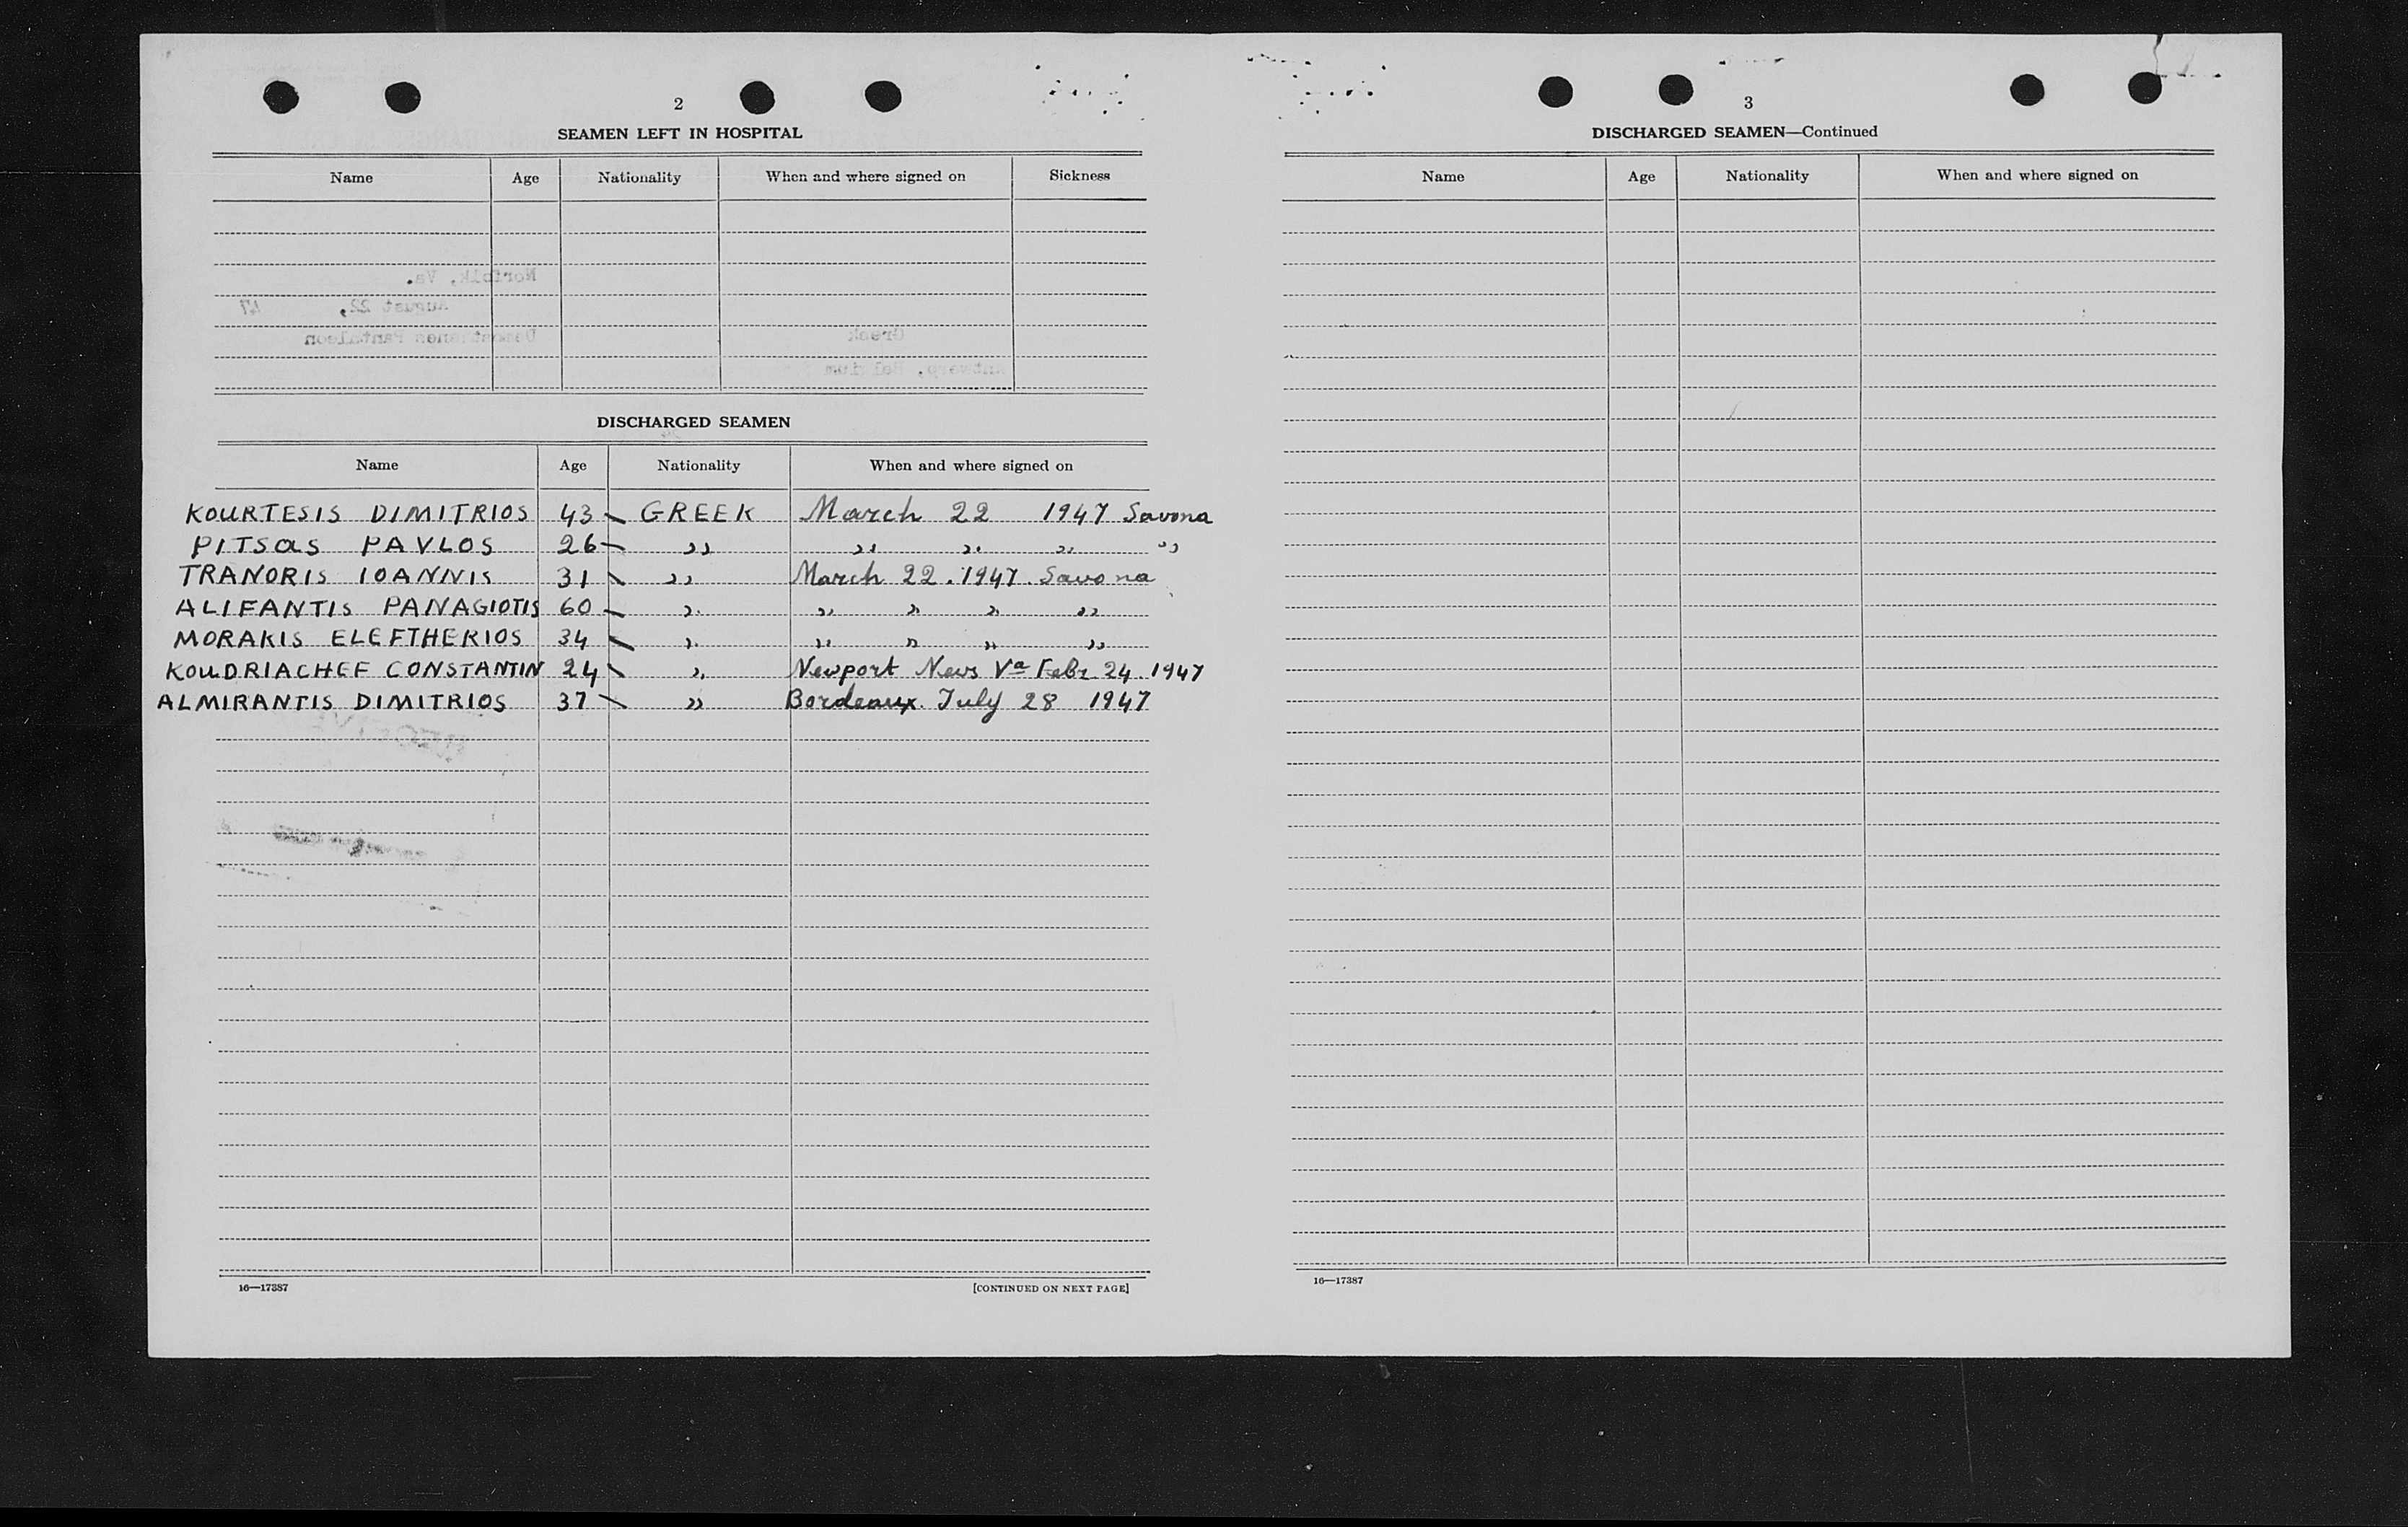 2
SEAMEN LEFT IN HOSPITAL
Name Age Nationality When and where signed on Sickness
Norfolk, Va.
August 22, 47
Demosthenes Pantaleon Greek
Antwerp, Belgium
DISCHARGED SEAMEN
Name Age Nationality When and where signed on
KOURTESIS DIMITRIOS 43 GREEK March 22 1947 Savona
PITSAS PAVLOS 26 ,, ,, ,, ,, ,,
TRANORIS IOANNIS 31 ,, March 22. 1947. Savona
ALIFANTIS PANAGIOTIS 60 ,, ,, ,, ,, ,,
MORAKIS ELEFTHERIOS 34 ,, ,, ,, ,, ,,
KOUDRIACHEF CONSTANTIN 24 ,, Newport News Va Febr. 24. 1947
ALMIRANTIS DIMITRIOS 37 ,, Bordeaux. July 28 1947
16—17387 [CONTINUED ON NEXT PAGE]
3
DISCHARGED SEAMEN—Continued
Name Age Nationality When and where signed on
16—17387